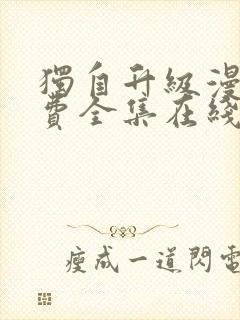 獨自升級漫
費全集在綫
瘦成一道閃電